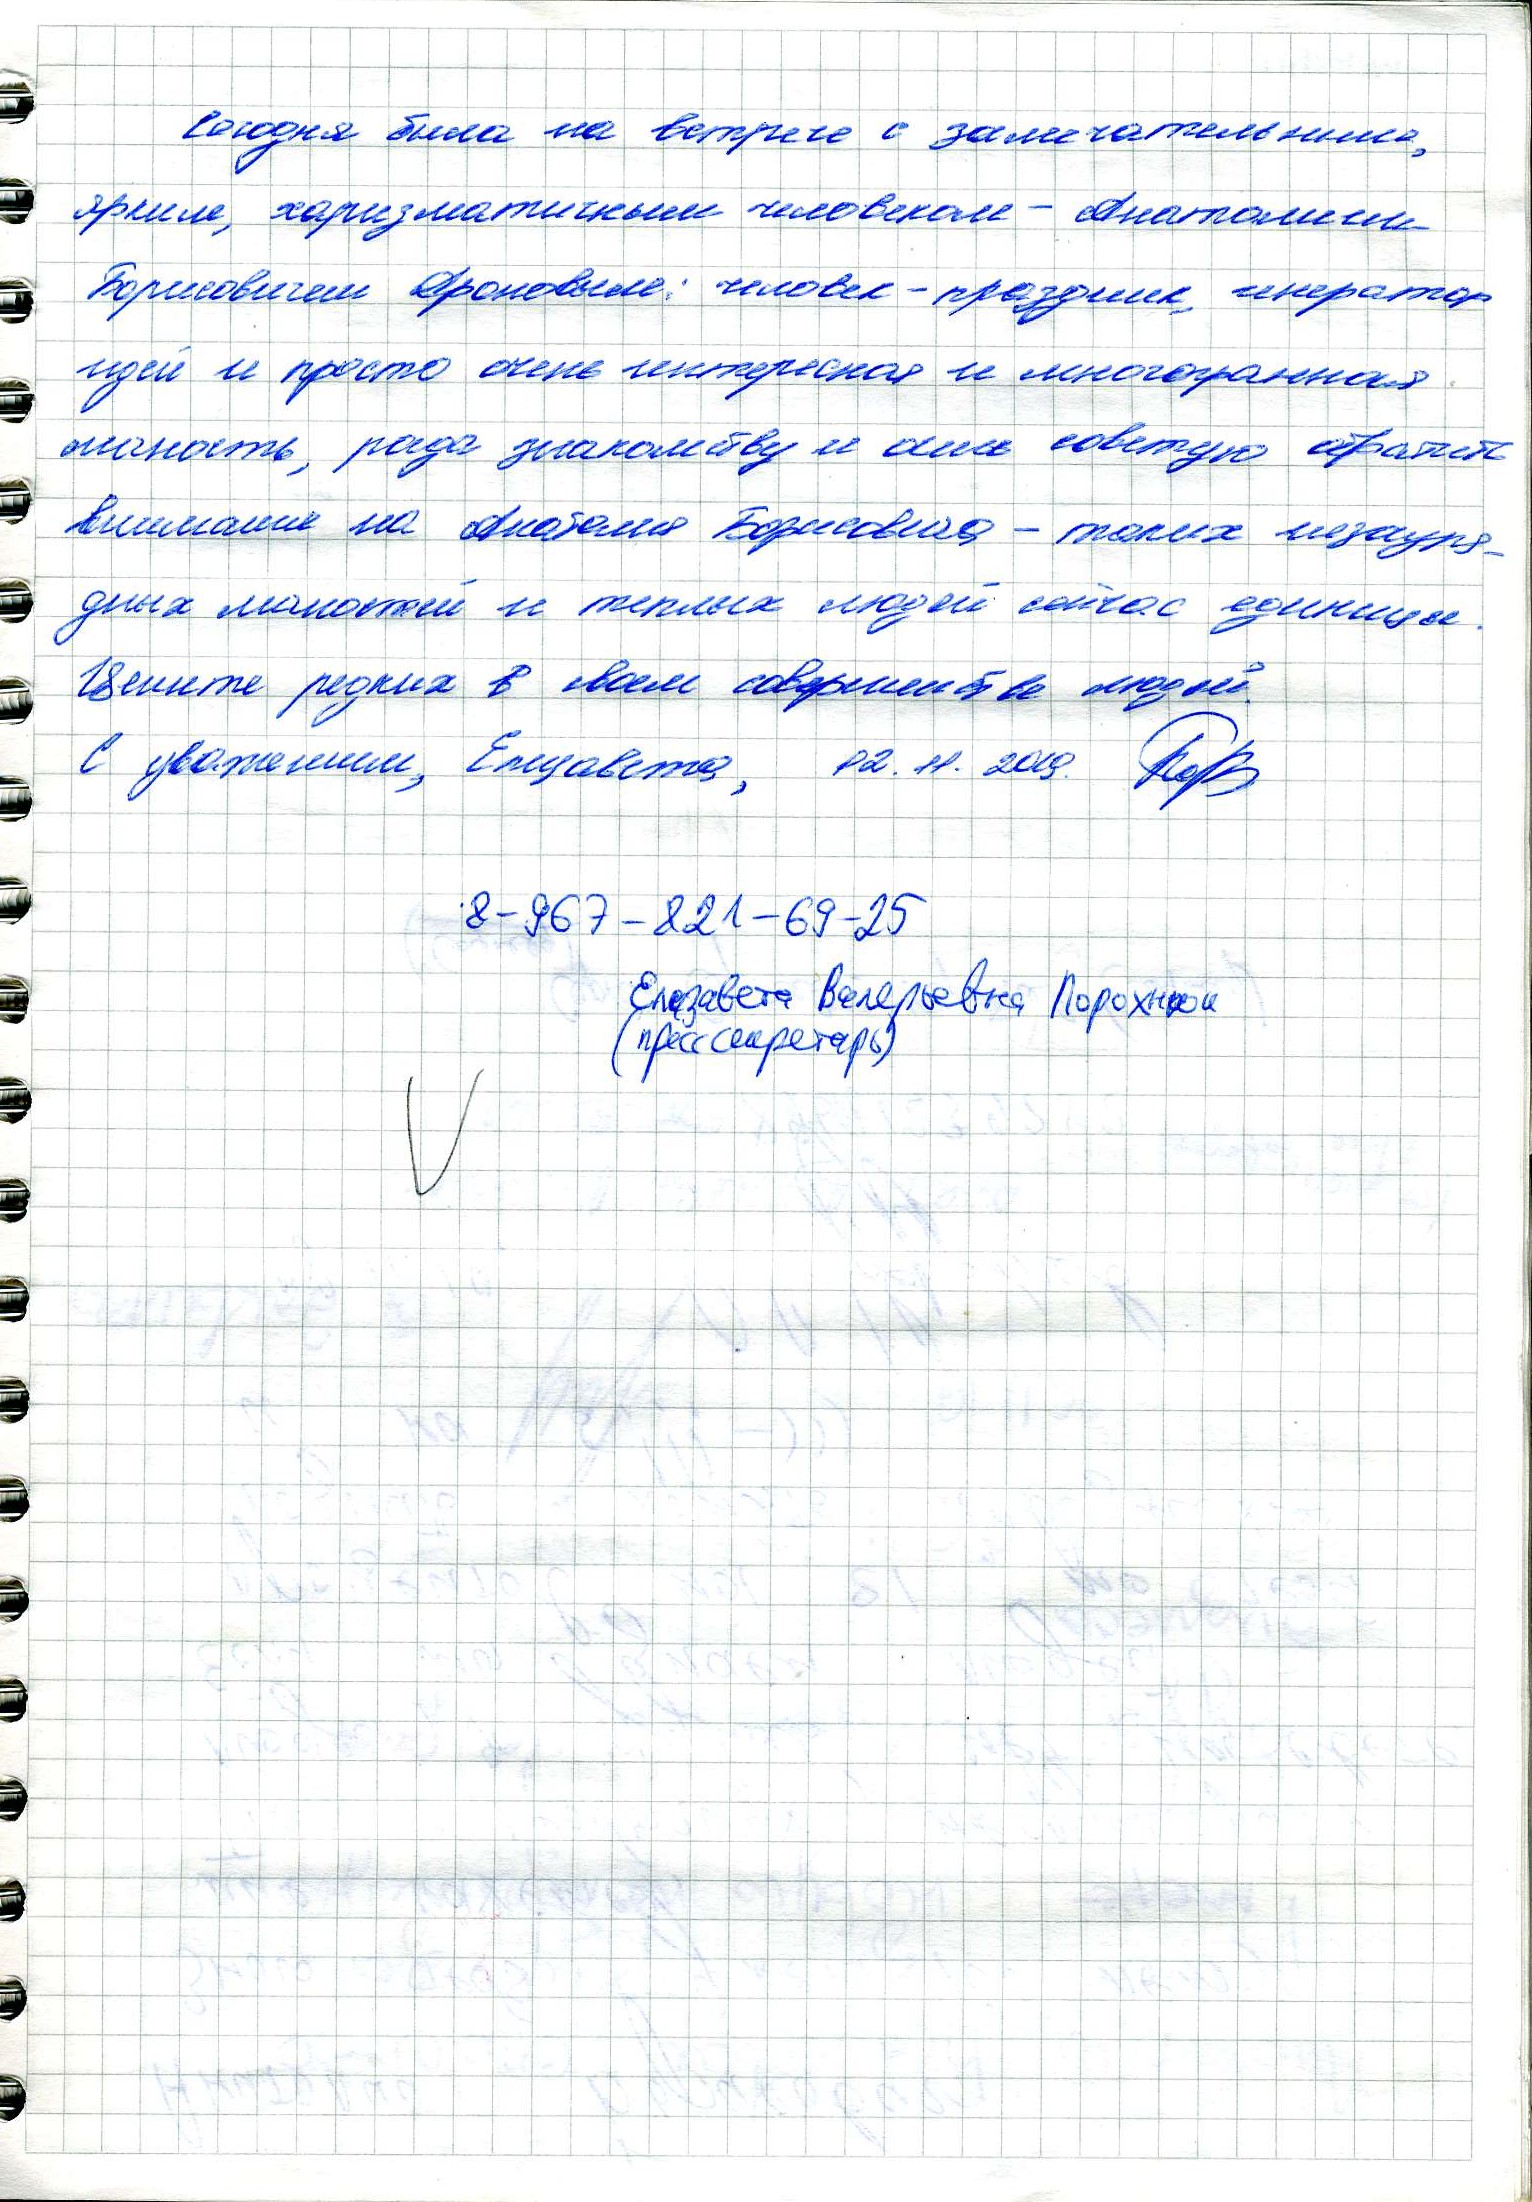 Сегодня была на встрече с замечательным,
ярким, харизматичным человеком – Анатолием
Борисовичем Ароновым: человек – праздник, генератор
идей и просто очень интересная и многогранная
личность, рада знакомству и всем советую обратить
внимание на Анатолия Борисовича – таких незауря-
дных личностей и теплых людей сейчас единицы.
Цените редких в своем совершенстве людей.
С уважением, Елизавета, 02. 11. 2019.
8-967-821-69-25
Елизавета Валерьевна
(пресссекретарь)